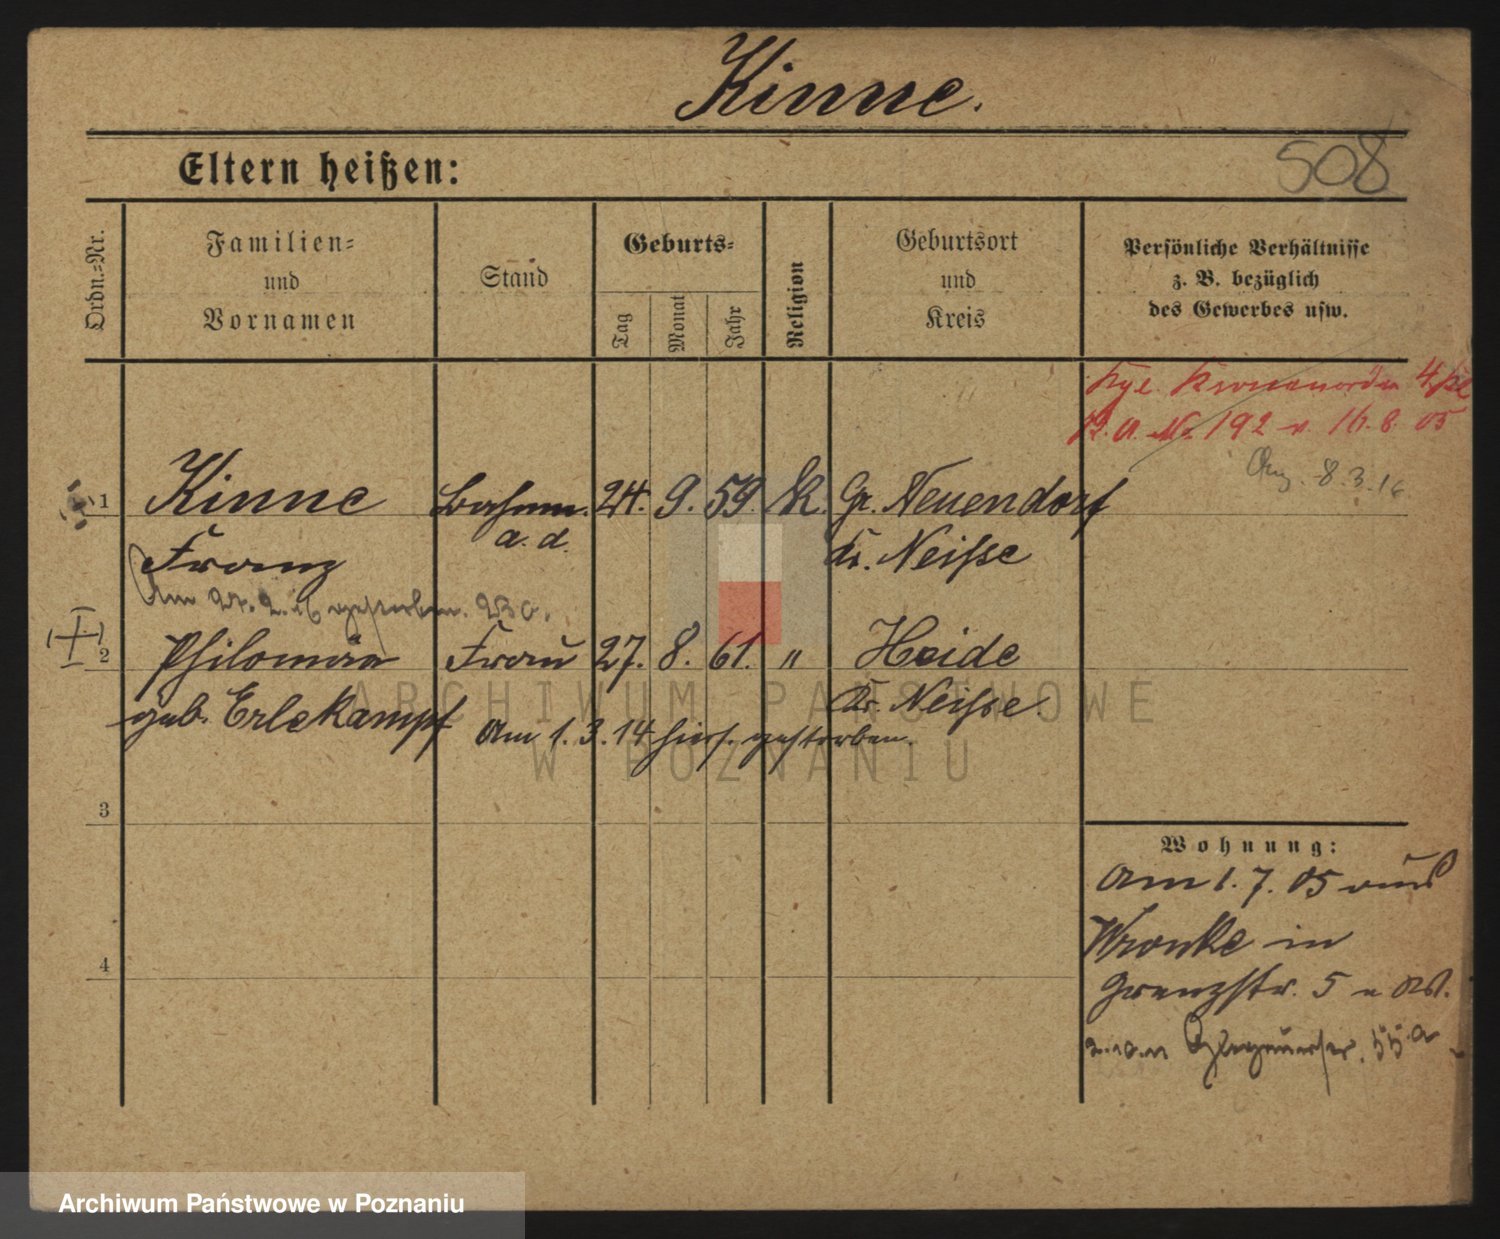 Kinne.
Eltern heißen:
508
Ordn.-Nr.
Familien-
und
Vornamen
Stand
Geburts-
Tag
Monat
Jahr
Religion
Geburtsort
und
Kreis
Persönliche Verhältnisse
z. B. bezüglich
des Gewerbes usw.
Kgl. Kronenorden 4 Kl
B. A. No. 192 v. 16. 8. 05
8. 3. 16
1 Kinne 24. 9. 59. K. Gr. Neuendorf
Franz a. d. Kr. Neisse
Am 2. 16 gestorben. 230.
2 Philomena Frau 27. 8. 61. " Heide
geb. Erlekampf Kr. Neisse.
Am 1. 3. 14 hier. gestorben.
3
4
Wohnung:
Am 1. 7. 05 aus
Wronke in
Grenzstr. 5
Glogauerstr. 55a
ARCHIWUM PAŃSTWOWE
W POZNANIU
Archiwum Państwowe w Poznaniu